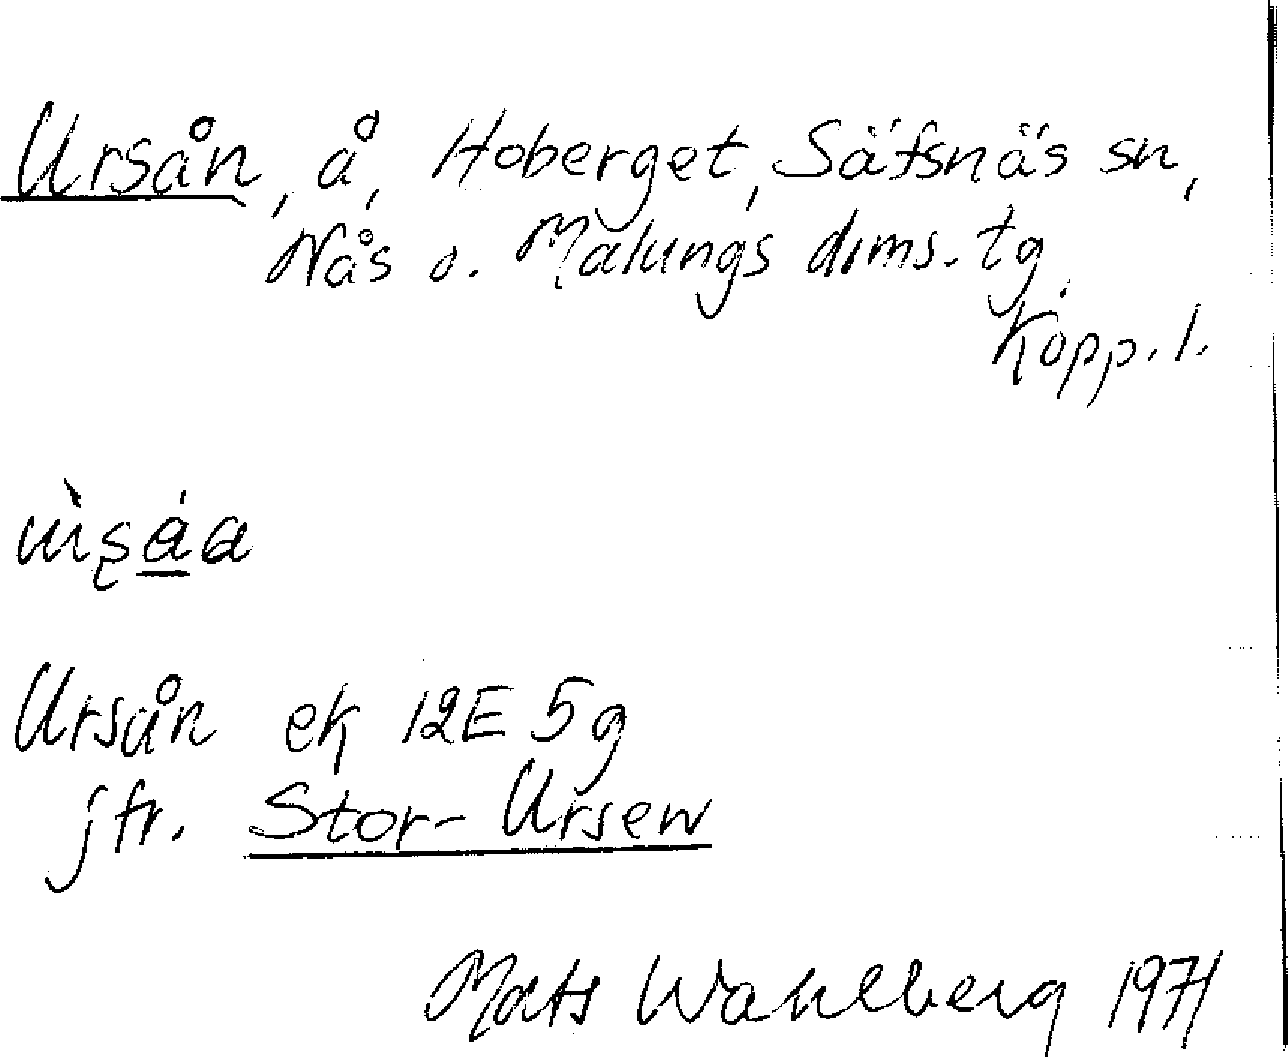 Ursån, å, Hoberget, Säfsnäs sn,
Nås o. Malungs doms. tg.
Kopp. l.
Ursån ek 12E 5g
jfr. Stor-Ursen
Mats Wahlberg 1971